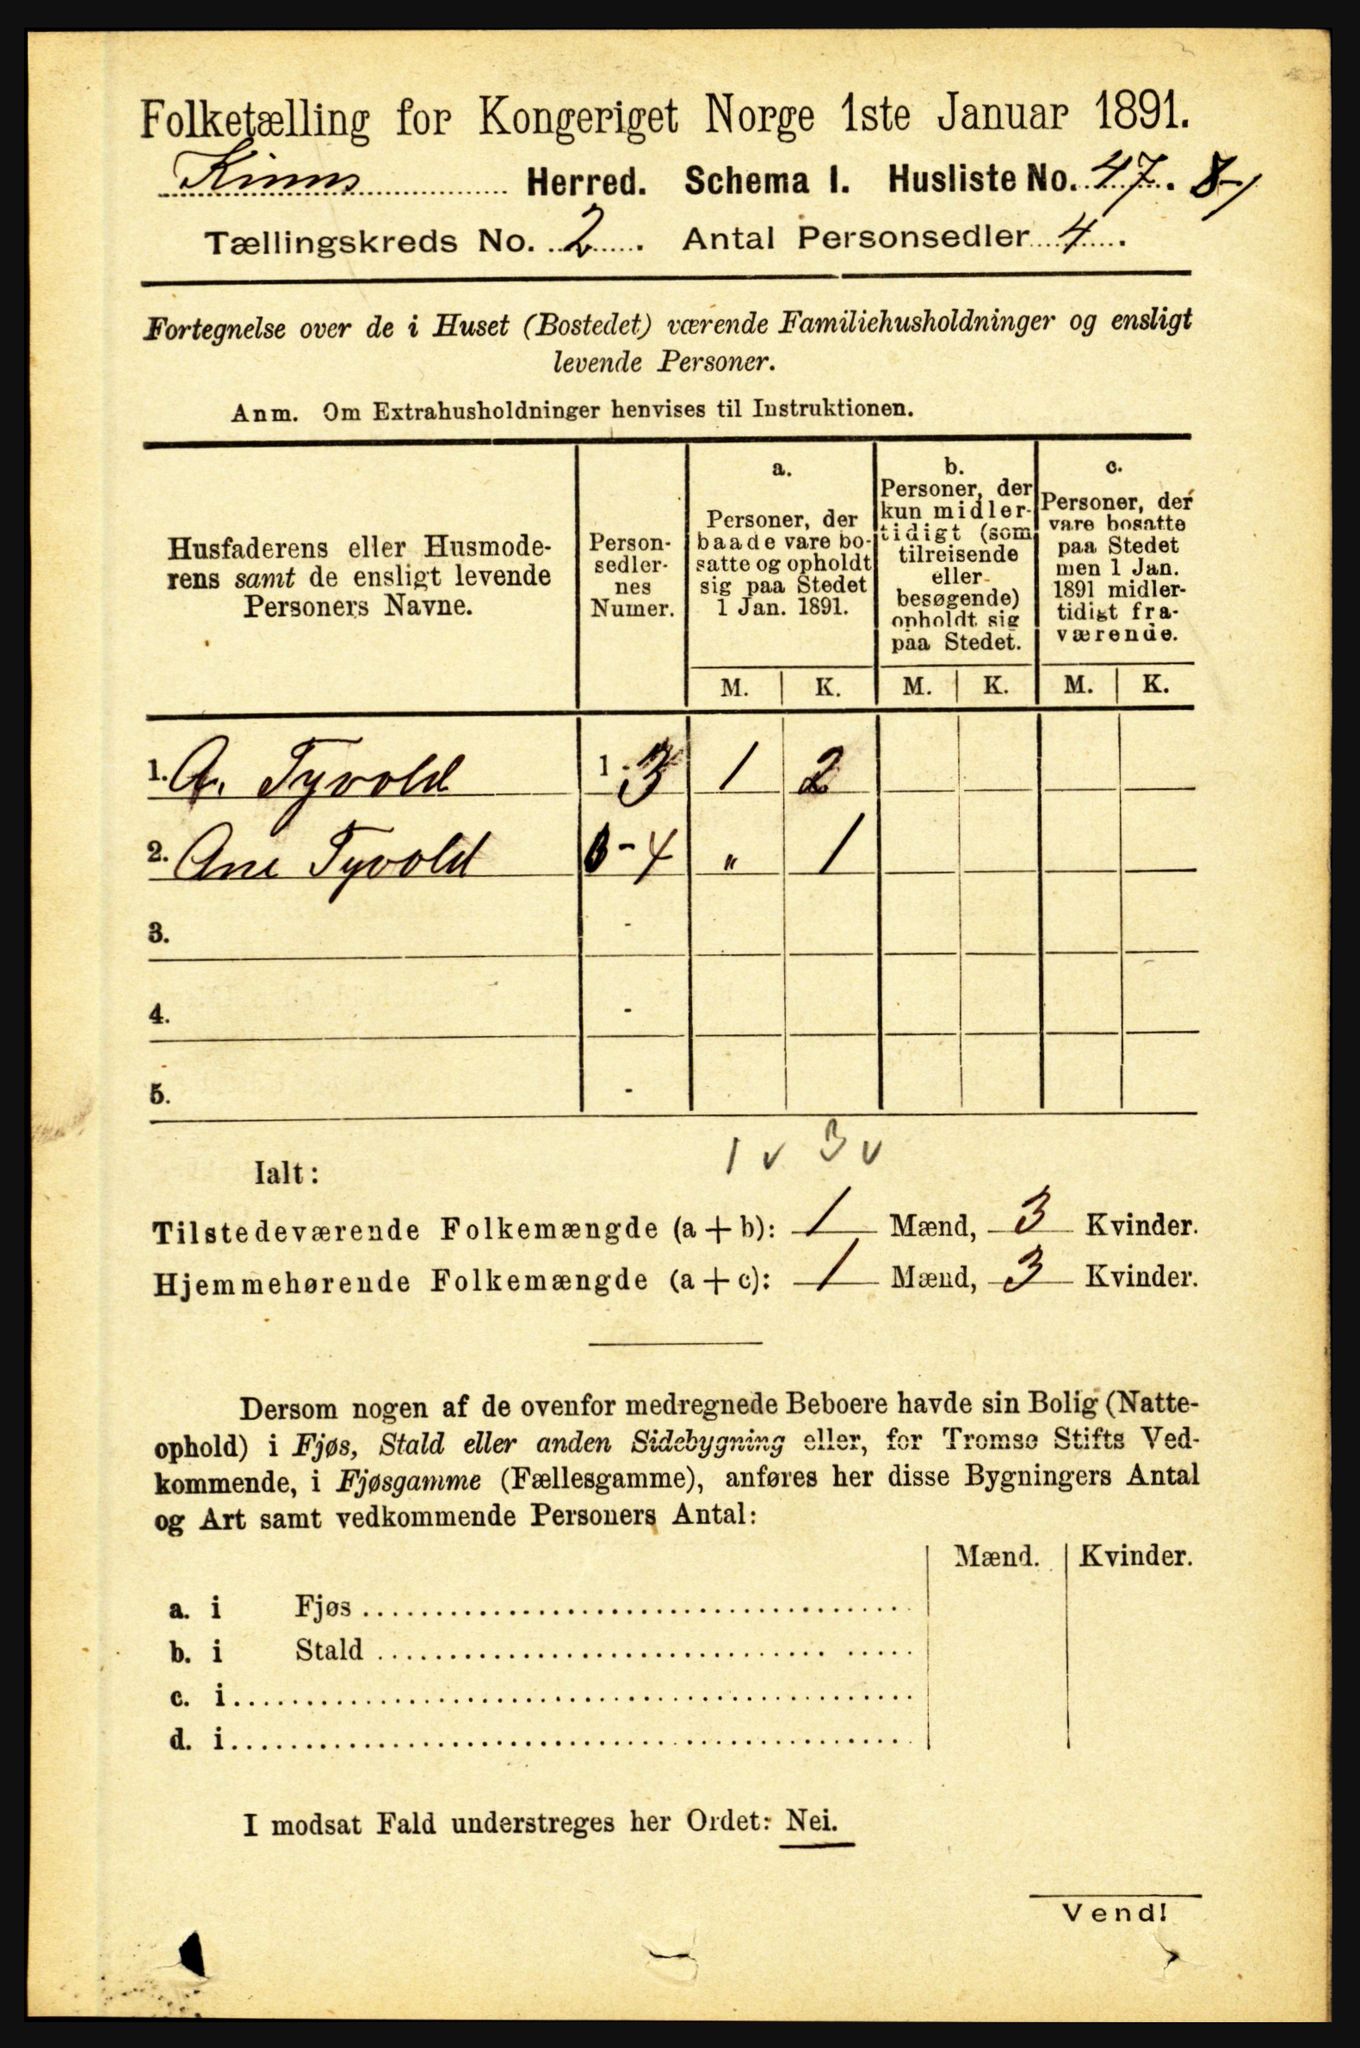 Folketælling for Kongeriget Norge 1ste Januar 1891.
Kinns Herred. Schema I. Husliste No. 47.
Tællingskreds No. 2. Antal Personsedler 4.
Fortegnelse over de i Huset (Bostedet) værende Familiehusholdninger og ensligt
levende Personer.
Anm. Om Extrahusholdninger henvises til Instruktionen.
Husfaderens eller Husmode-
rens samt de ensligt levende
Personers Navne.
Person-
sedler-
nes
Numer.
a.
Personer, der
baade vare bo-
satte og opholdt
sig paa Stedet
1 Jan. 1891.
b.
Personer, der
kun midler-
tidigt (som
tilreisende
eller
besøgende)
opholdt sig
paa Stedet.
c.
Personer, der
vare bosatte
paa Stedet
men 1 Jan.
1891 midler-
tidigt fra-
værende.
M. K. M. K. M. K.
1. A. Tyvold 1 - 3 1 2
2. Ane Tyvold - 4 " 1
3. -
4. -
5. -
1 v 3 v
Ialt:
Tilstedeværende Folkemængde (a + b): 1 Mænd, 3 Kvinder.
Hjemmehørende Folkemængde (a + c): 1 Mænd, 3 Kvinder.
Dersom nogen af de ovenfor medregnede Beboere havde sin Bolig (Natte-
ophold) i Fjøs, Stald eller anden Sidebygning eller, for Tromsø Stifts Ved-
kommende, i Fjøsgamme (Fællesgamme), anføres her disse Bygningers Antal
og Art samt vedkommende Personers Antal:
Mænd. Kvinder.
a. i Fjøs
b. i Stald
c. i
d. i
I modsat Fald understreges her Ordet: Nei.
Vend!